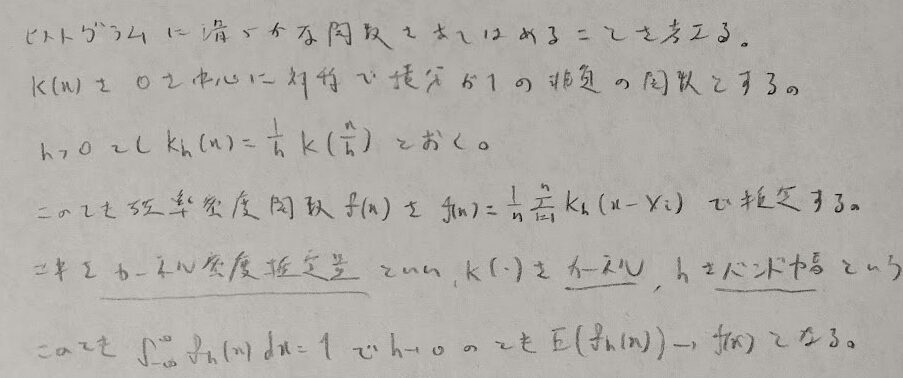 ヒストグラムに滑らかな関数をあてはめることを考える。
K(x)を0を中心に対称で積分が1の非負の関数とする。
h>0とし Kh(x)=1/h K(x/h) とおく。
このとき確率密度関数f(x)を f(x)=1/n Σ_{i=1}^{n} Kh(x-Xi) で推定する。
これをカーネル密度推定量といい、K(・)をカーネル、hをバンド幅という
このとき ∫_{-∞}^{∞} fh(x)dx=1 でh→0のとき E(fh(x))→f(x)となる。